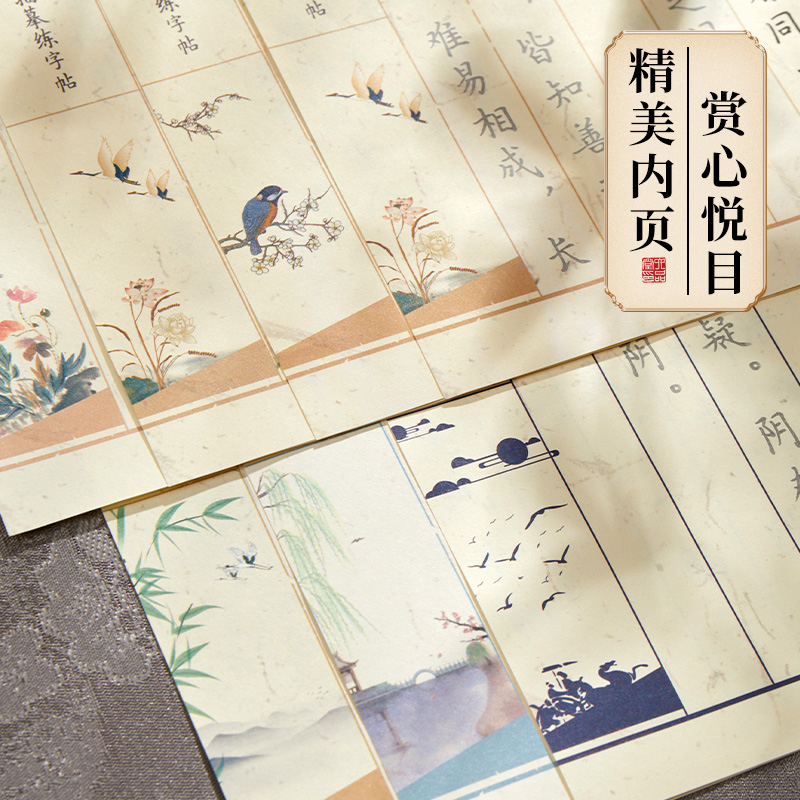 精美内页
赏心悦目
同
皆知善
难易相成，
长
帖
字帖
摹练字帖
阴
疑。
阴。